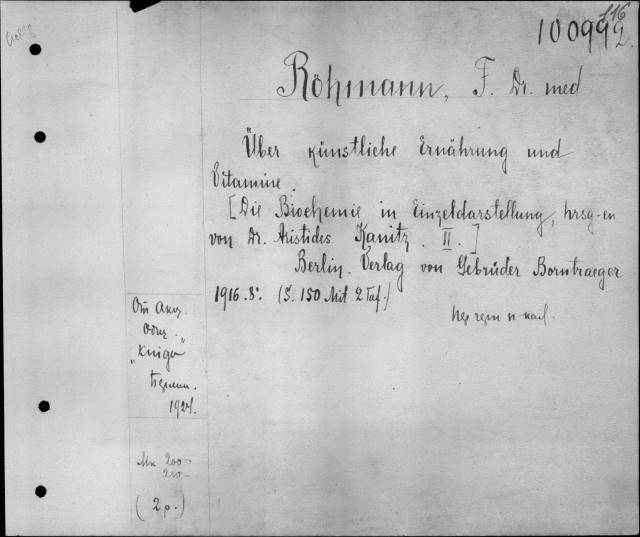 116
100992
Röhmann, F. Dr. med
Über künstliche Ernährung und
Vitamine.
[Die Biochemie in Einzeldarstellung, hrsg-en
von Dr. Aristides Kanitz. II.]
Berlin. Verlag von Gebrüder Borntraeger
1916. 8°. (S. 150 Mit 2 Taf.)
От Акц.
Общ.
„Knigo"
Берлин.
1924.
Мк 200-
200-
(2 р.)